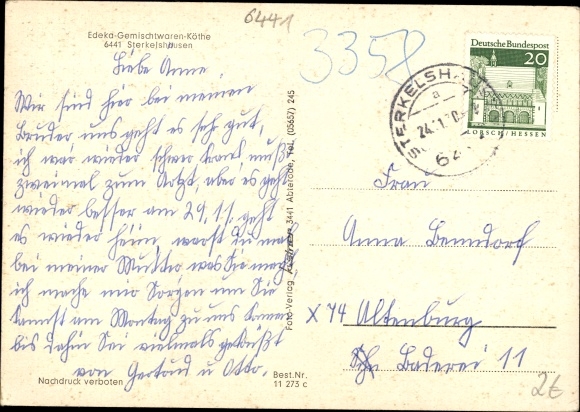 6441
Edeka-Gemischtwaren-Köthe
6441 Sterkelshausen
3358
Liebe Anne,
Wir sind hier bei meinem
Bruder uns geht es sehr gut,
ich war wieder schwer krank mußte
zweimal zum Arzt, aber es geht
wieder besser am 29.11. geht
es wieder heim, warst du mal
bei meiner Mutter was Sie macht,
ich mache mir Sorgen um Sie
kannst am Montag zu uns kommen
bis dahin Sei vielmals gegrüßt
von Gertrud u Otto.
Nachdruck verboten
Best.Nr.
11 273 c
Foto-Verlag 3441 Abterode, Tel. (05657) 245
Deutsche Bundespost
20
LORSCH/HESSEN
STERKELSH
a
24.11.70
644
Frau
Anna Benndorf
X 74 Altenburg
Baderei 11
2€